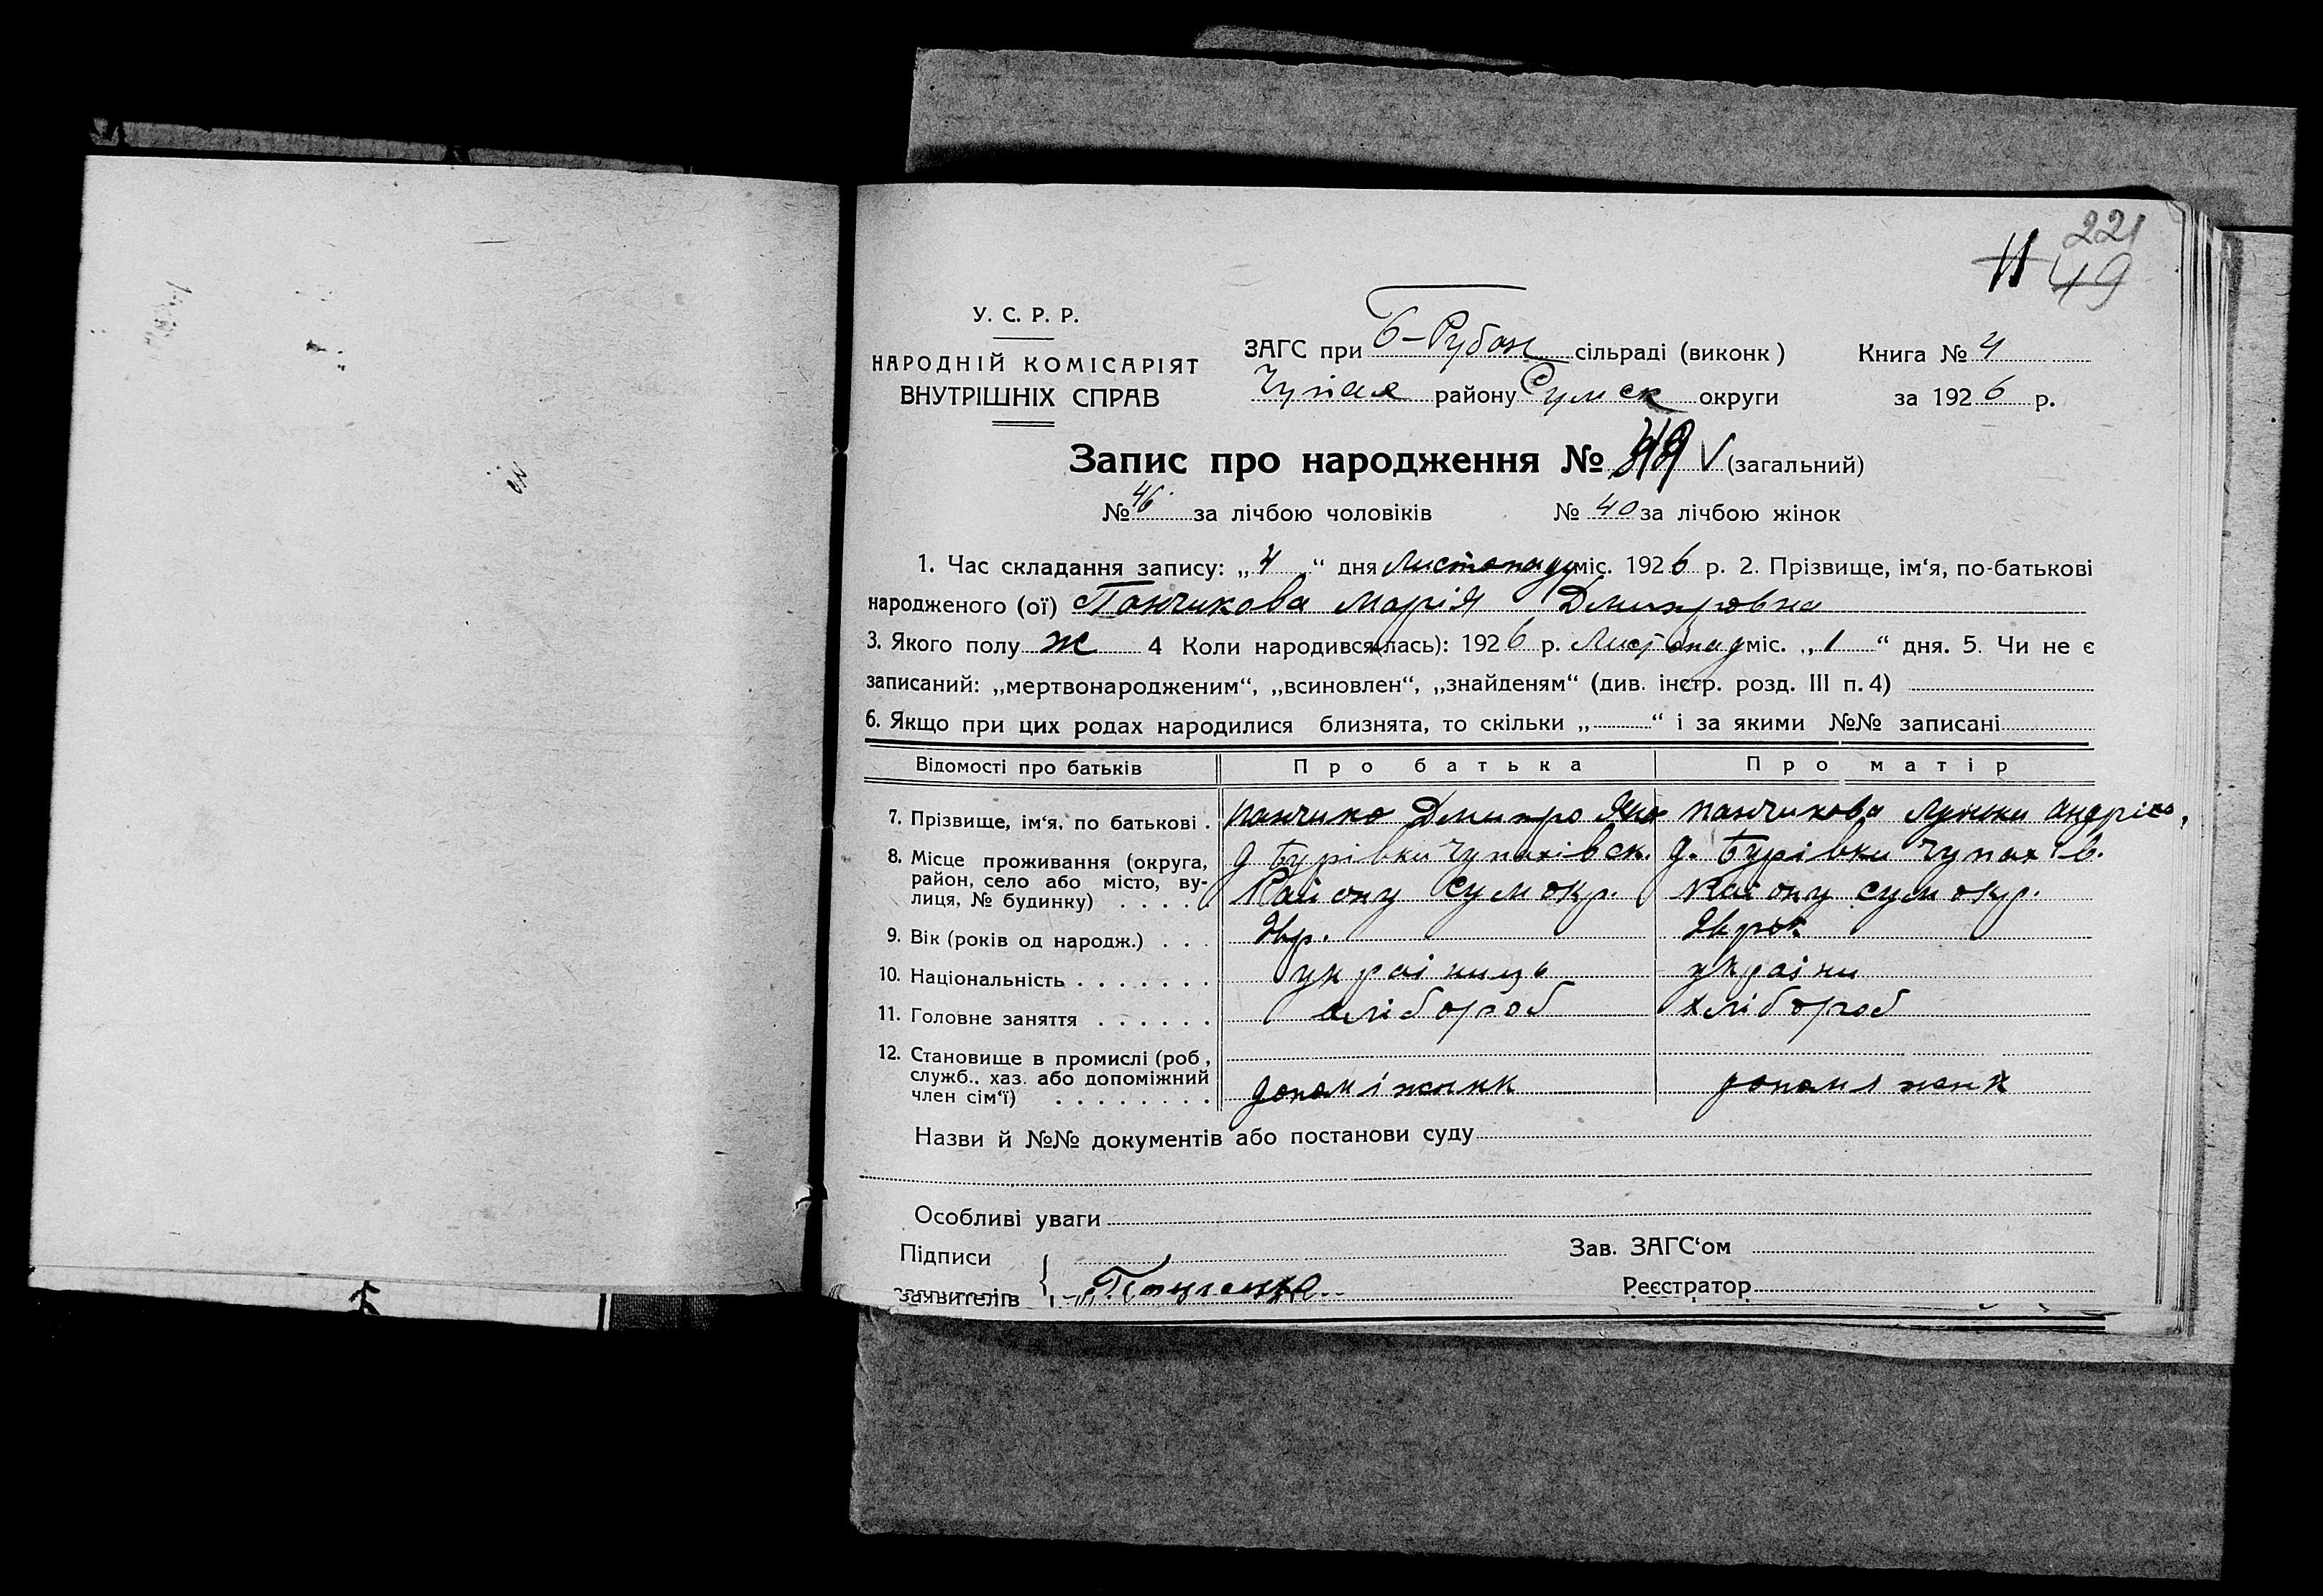 221
11 49
У. С. Р. Р.
НАРОДНІЙ КОМІСАРІЯТ
ВНУТРІШНІХ СПРАВ
ЗАГС при Б-Рубан сільраді (виконк) Книга № 4
Чупах району Сумск округи за 1926 р.
Запис про народження № (загальний)
№ 46 за лічбою чоловіків № 40 за лічбою жінок
1. Час складання запису: „4“ дня Листопаду міс. 1926 р. 2. Прізвище, ім‘я, по-батькові
народженого (ої) Панчикова Марія Дмитровна
3. Якого полу ж 4 Коли народився(лась): 1926 р. Листопад міс. „1“ дня. 5. Чи не є
записаний: „мертвонародженим“, „всиновлен“, „знайденям“ (див. інстр. розд. III п. 4)
6. Якщо при цих родах народилися близнята, то скільки „ “ і за якими №№ записані
Відомості про батьків Про батька Про матір
7. Прізвище, ім‘я, по батькові . Панчико Дмитро Панчикова
8. Місце проживання (округа, район, село або місто, вулиця, № будинку) . . . . . д Бурівки Чупахівск. д. Бурівки Чупахів.
Району Сум окр. Району Сум окр.
9. Вік (років од народж.) . . .
10. Національність . . . . . . . українець україн
11. Головне заняття . . . . . . хлібороб хлібороб
12. Становище в промислі (роб, служб., хаз. або допоміжний член сім‘ї) . . . . . . . . допоміжник
Назви й №№ документів або постанови суду
Особливі уваги
Підписи Зав. ЗАГС‘ом
заявителів Реєстратор